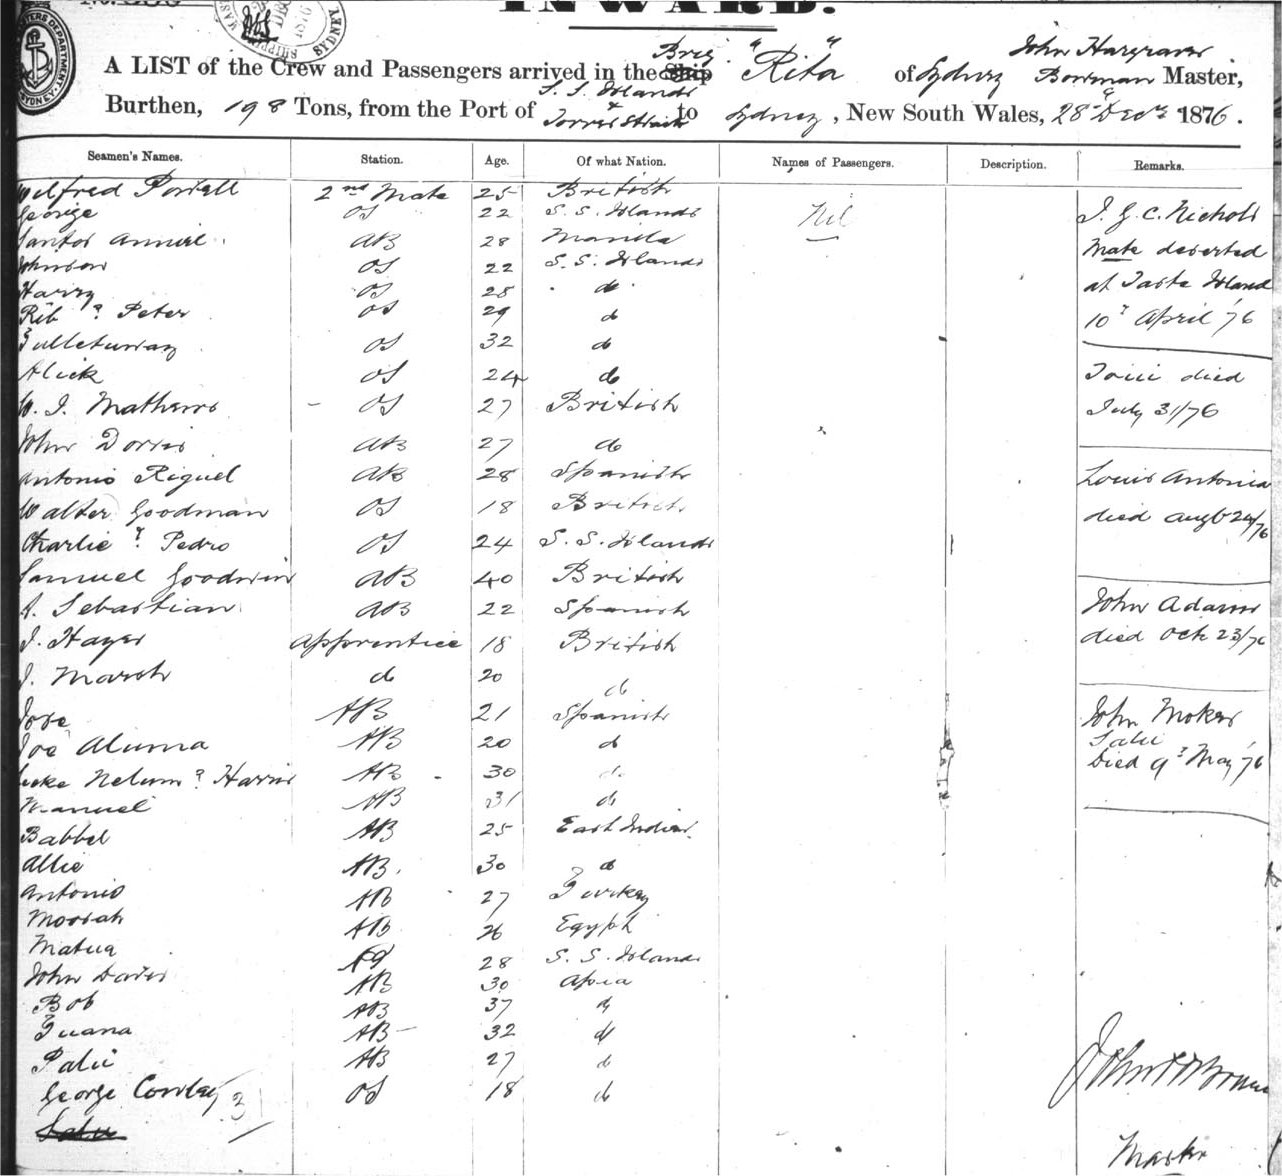 INWARD.
A LIST of the Crew and Passengers arrived in the Ship Brig "Rita" of Sydney John Hargraves Bowman Master,
Burthen, 198 Tons, from the Port of S. S. Islands & Torres Straits to Sydney, New South Wales, 28th Decr 1876.
Seamen's Names. Station. Age. Of what Nation. Names of Passengers. Description. Remarks.
Wilfred Powell 2nd Mate 25 British
George OS 22 S. S. Islands Nil J. G. C. Nichols
Santos AB 28 Manila Mate deserted
Johnson OS 22 S. S. Islands
Harry OS 28 do at Island
Peter OS 29 do 10 April '76
OS 32 do
Alick OS 24 do died
W. J. Mathews OS 27 British July 31/76
John Dorris AB 27 do
Antonio Riquel AB 28 Spanish Louis Antonia
Walter Goodman OS 18 British died Augt 24/76
Charlie Pedro OS 24 S. S. Islands
Samuel Goodwin AB 40 British
A. Sebastian AB 22 Spanish John Adams
J. Hayes Apprentice 18 British died Oct 23/76
J. Marsh do 20 do
Jose AB 21 Spanish John Mokes
Joe Aluma AB 20 do Salu
Harris AB 30 do Died 9 May '76
Manuel AB 31 do
Babbel AB 25 East Indies
Allie AB. 30 do
Antonio AB 27 Turkey
Moosah AB 26 Egypt
Matua 28 S. S. Islands
John Davis AB 30 Apia
Bob AB 37 do
Guana AB 32 do
Palu AB 27 do
George Cowley OS 18 do
31
Salu
Master